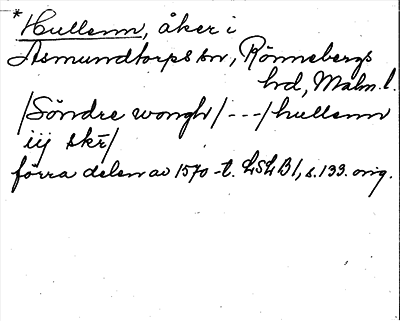 *Hullenn, åker i
Asmundtorps sn, Rönnebergs
hd, Malm.l.
/Söndre wongh/---/hullenn
iij skr̄/
förra delen av 1570-t. LSLB1, s.199. orig.